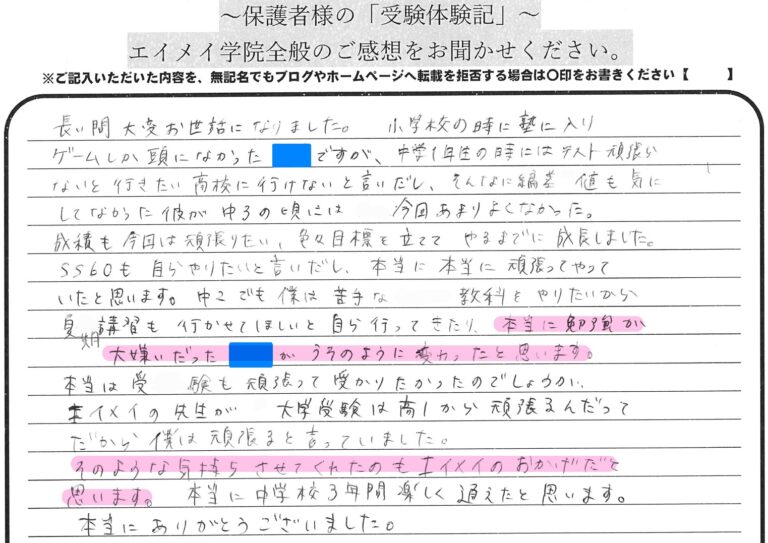 ～保護者様の「受験体験記」～
エイメイ学院全般のご感想をお聞かせください。
※ご記入いただいた内容を、無記名でもブログやホームページへ転載を拒否する場合は〇印をお書きください【　　　】
長い間 大変お世話になりました。 小学校の時に塾に入り
ゲームしか頭になかった ですが、中学1年生の時にはテスト頑張ら
ないと行きたい高校に行けないと言いだし、そんなに偏差値も気に
してなかった彼が中3の頃には 今回あまりよくなかった。
成績も今回は頑張りたい、色々目標を立てて やるまでに成長しました。
SS60も 自らやりたいと言いだし、本当に本当に頑張ってやって
いたと思います。中2でも僕は苦手な 教科をやりたいから
夏期講習も 行かせてほしいと 自ら行ってきたり、本当に勉強が
大嫌いだった がうそのように変わったと思います。
本当は受験も頑張って受かりたかったのでしょうが、
エイメイの先生が 大学受験は高1から頑張るんだって
だから僕は頑張ると言っていました。
そのような気持ちさせてくれたのもエイメイのおかげだと
思います。 本当に中学校3年間楽しく通えたと思います。
本当にありがとうございました。